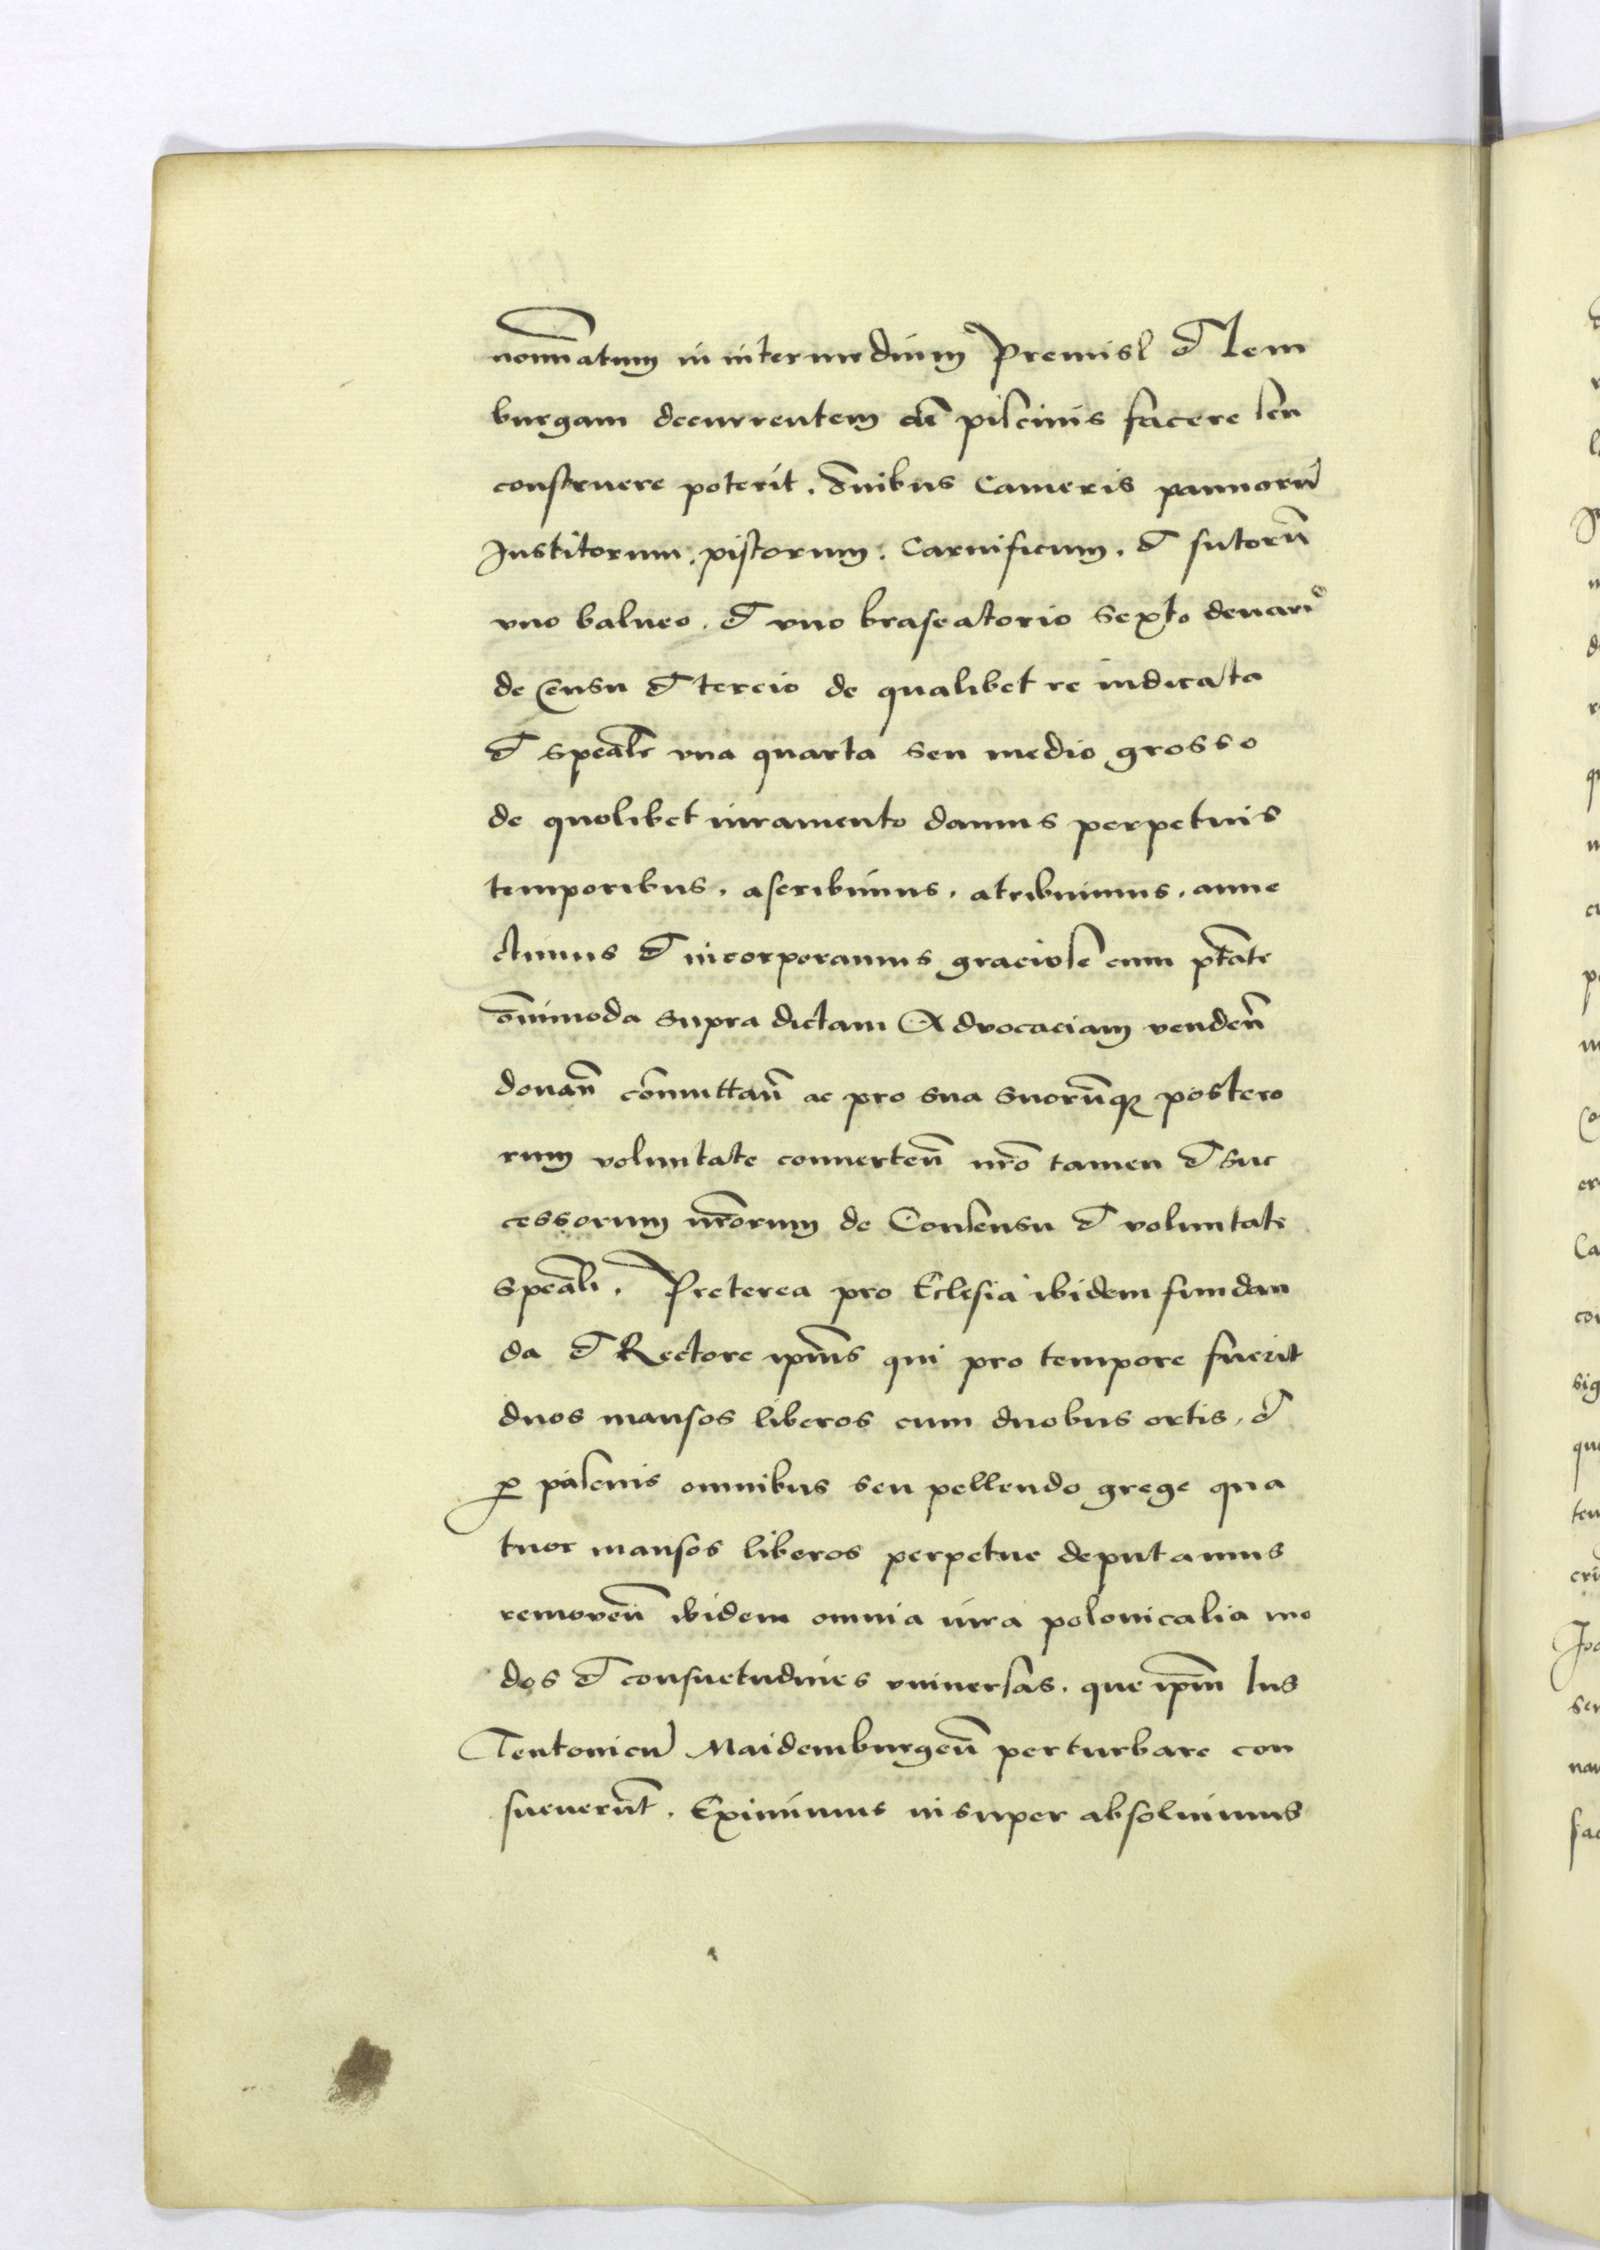 nominatum in intermedium Premisl et lem
burgam decurrentem cū piscinis facere seu
construere poterit. ōnibus Cameris pannorū
Institorum. pistorum. Carnificum. et sutorū
vno balneo. et vno braseatorio sexto denario
de Censu et tercio de qualibet re iudicata
et speāle vna quarta seu medio grosso
de quolibet iuramento damus perpetuis
temporibus. ascribimus. atribuimus. anne
ctimus et incorporamus graciose cum ptāte
ōnimoda supra dictam Advocaciam vendeñ
donañ cōmittañ ac pro sua suorūque postero
rum voluntate conuerteñ nrō tamen et suc
cessorum nrōrum de Consensu et voluntate
speāli. Preterea pro Eclesia ibidem fundan
da et Rectore ipīus qui pro tempore fuerit
duos mansos liberos cum duobus ortis. et
p pascuis omnibus seu pellendo grege qua
tuor mansos liberos perpetue deputamus
remoueñ ibidem omnia iura polonicalia mo
dos et consuetudines vniuersas. que ipm̄ Ius
Teutonicū Maidemburgeñ perturbare con
sueuerūt. Eximimus insuper absoluimus